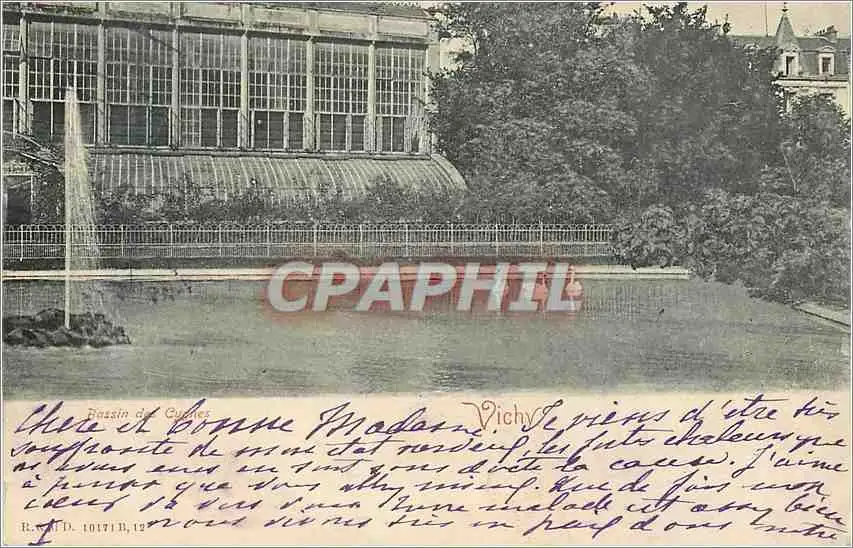 CPAPHIL
Bassin des Cygnes
Vichy
Chère et bonne Madame, Je viens d'être très
souffrante de mon état nerveux, les fortes chaleurs que
nous avons eues en sont sans doute la cause. J'aime
à penser que vous allez mieux. Que de fois mon
cœur va vers vous. Notre malade est assez bien
nous vivons très en paix dans notre
R. & J. D. 10171 B, 12